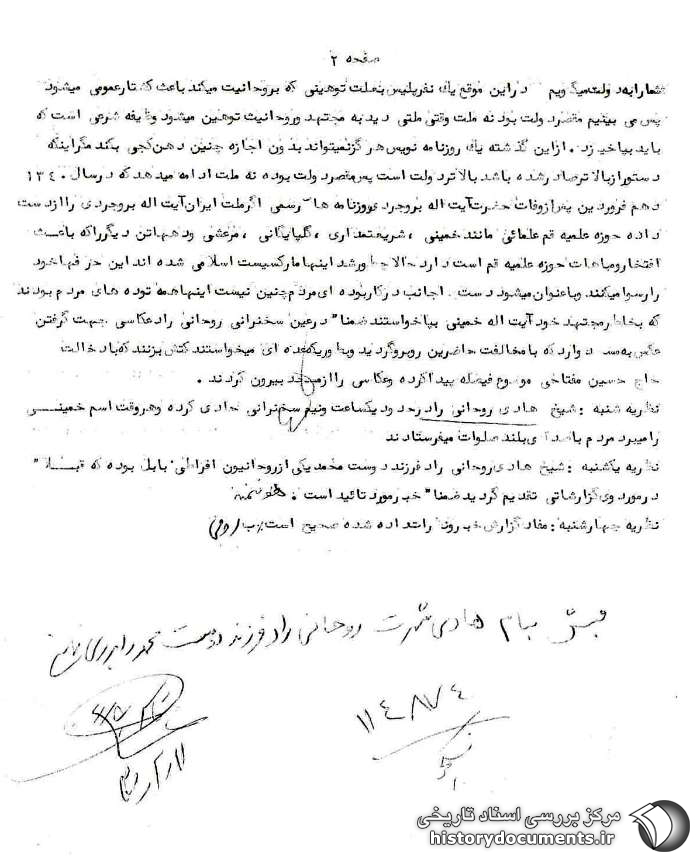 صفحه ۲
شمارابه دولت میگویم در این موقع یک نفر پلیس بعلت توهینی که بروحانیت میکند باعث کشتار عمومی میشود
پس می بینیم مقصر دولت بود نه ملت وقتی ملتی دید به مجتهد وروحانیت توهین میشود وظیفه شرعی است که
باید بپاخیزد . از این گذشته یک روزنامه نویس هرگز نمیتواند بدون اجازه چنین دهن کجی بکند مگر اینکه
دستور از بالاتر صادر شده باشد بالاتر دولت است پس مقصر دولت بوده نه ملت ادامه میدهد که در سال ۱۳۴۰
دهم فروردین پس از وفات حضرت آیت اله بروجردی روزنامه ها رسمی اگر ملت ایران آیت اله بروجردی را از دست
داده حوزه علمیه قم علمائی مانند خمینی ، شریعتمداری ، گلپایگانی ، مرعشی ودهها تن دیگر را که باعث
افتخار ومباهات حوزه علمیه قم است دارد حالا چطور شد اینها مارکسیست اسلامی شده اند این حرفها خود
را رسوا میکنند وباعنوان میشود دست اجانب در کار بوده ای مردم چنین نیست اینها همه توده های مردم بودند
که بخاطر مجتهد خود آیت اله خمینی بپا خواستند ضمنا" در عین سخنرانی روحانی راد عکاسی جهت گرفتن
عکس به مسجد وارد که با مخالفت حاضرین روبرو گردید وبطوریکه عده ای میخواستند کتش بزنند که با دخالت
حاج حسین مفتاحی موضوع فیصله پیدا کرده وعکاسی را از مسجد بیرون کردند .
نظریه شنبه : شیخ هادی روحانی راد حدود یکساعت ونیم سخنرانی حادی کرده وهروقت اسم خمینی
را میبرد مردم با صدای بلند صلوات میفرستادند
نظریه یکشنبه : شیخ هادی روحانی راد فرزند دوست محمد یکی از روحانیون افراطی بابل بوده که قبلا"
در مورد وی گزارشاتی تقدیم گردید ضمنا" خبر مورد تائید است .
نظریه چهارشنبه : مفاد گزارش خبر روند راتداده شده صحیح است ب
فیش بنام هادی شهرت روحانی راد فرزند دوست محمد
۱۱۴۸۷۴
مرکز بررسی اسناد تاریخی
historydocuments.ir